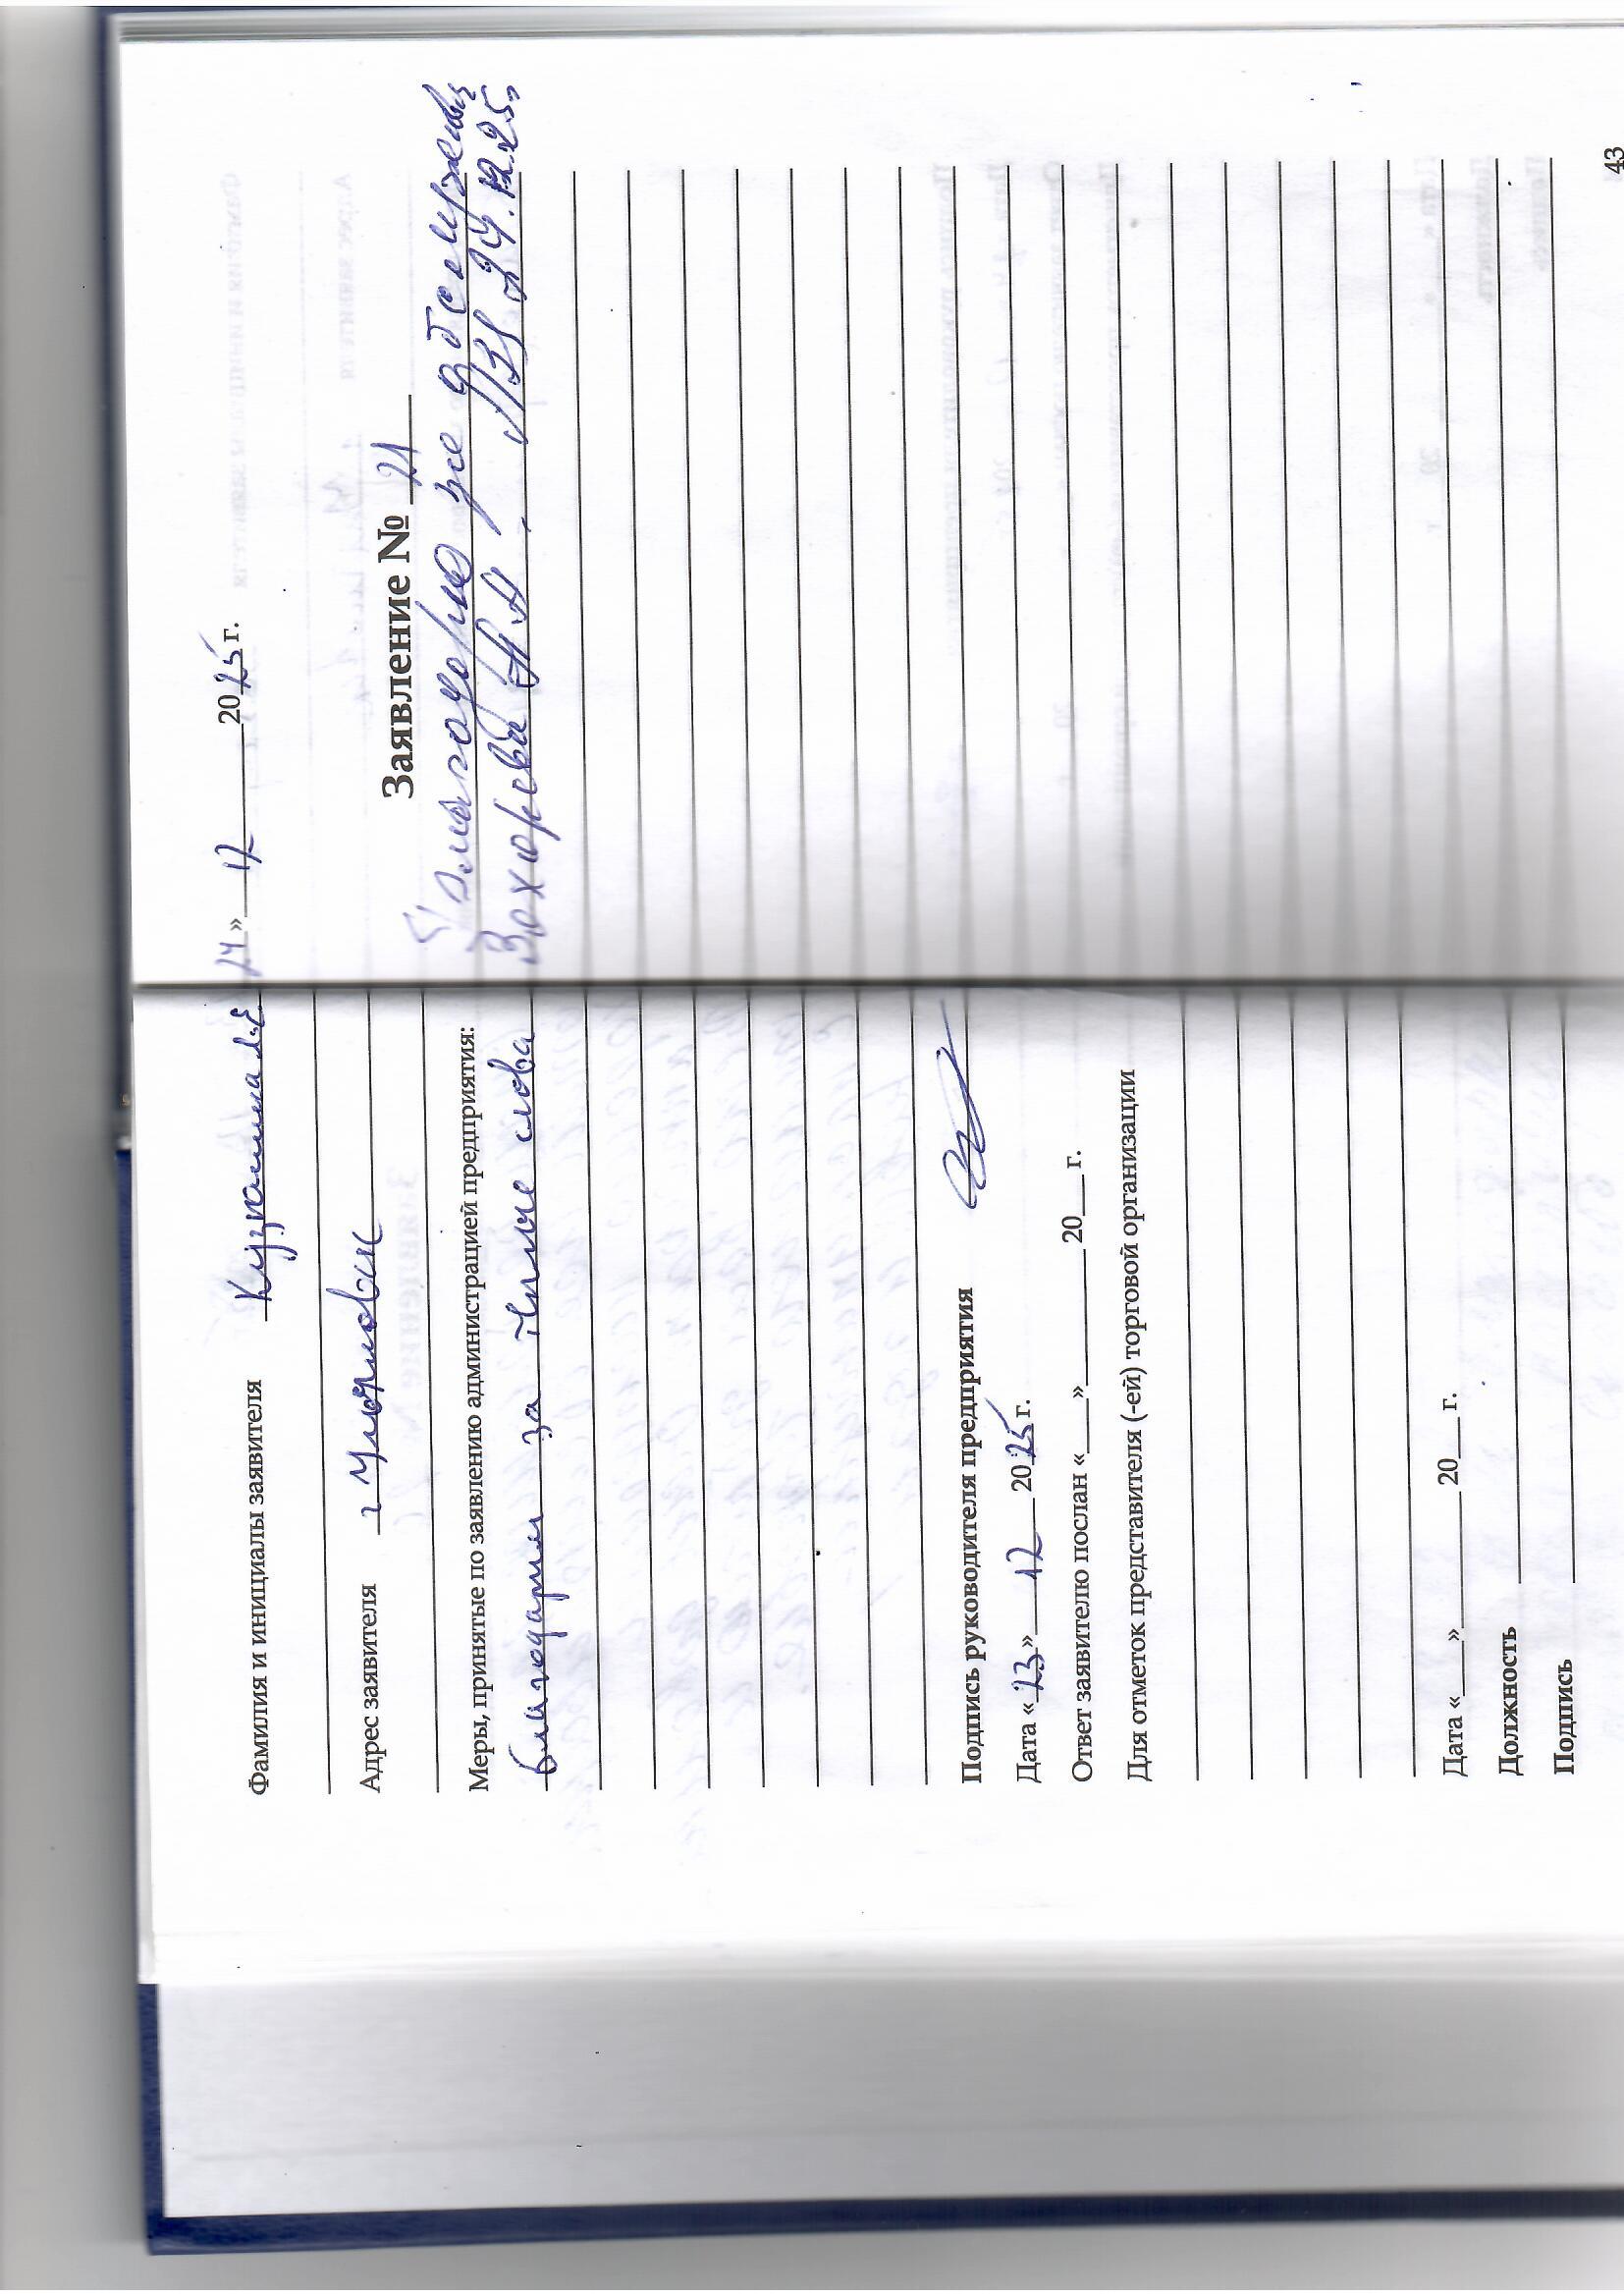 Фамилия и инициалы заявителя Кузнашина Л.Е.
Адрес заявителя г
Меры, принятые по заявлению администрацией предприятия:
благодарим за тёплые слова
Подпись руководителя предприятия
Дата «23» 12 2025 г.
Ответ заявителю послан «___»________20___г.
Для отметок представителя (-ей) торговой организации
Дата «___»________20___г.
Должность
Подпись
24» 12 2025 г.
Заявление № 21
Благодарю
Вохорева А Н. 24.12.25.
43